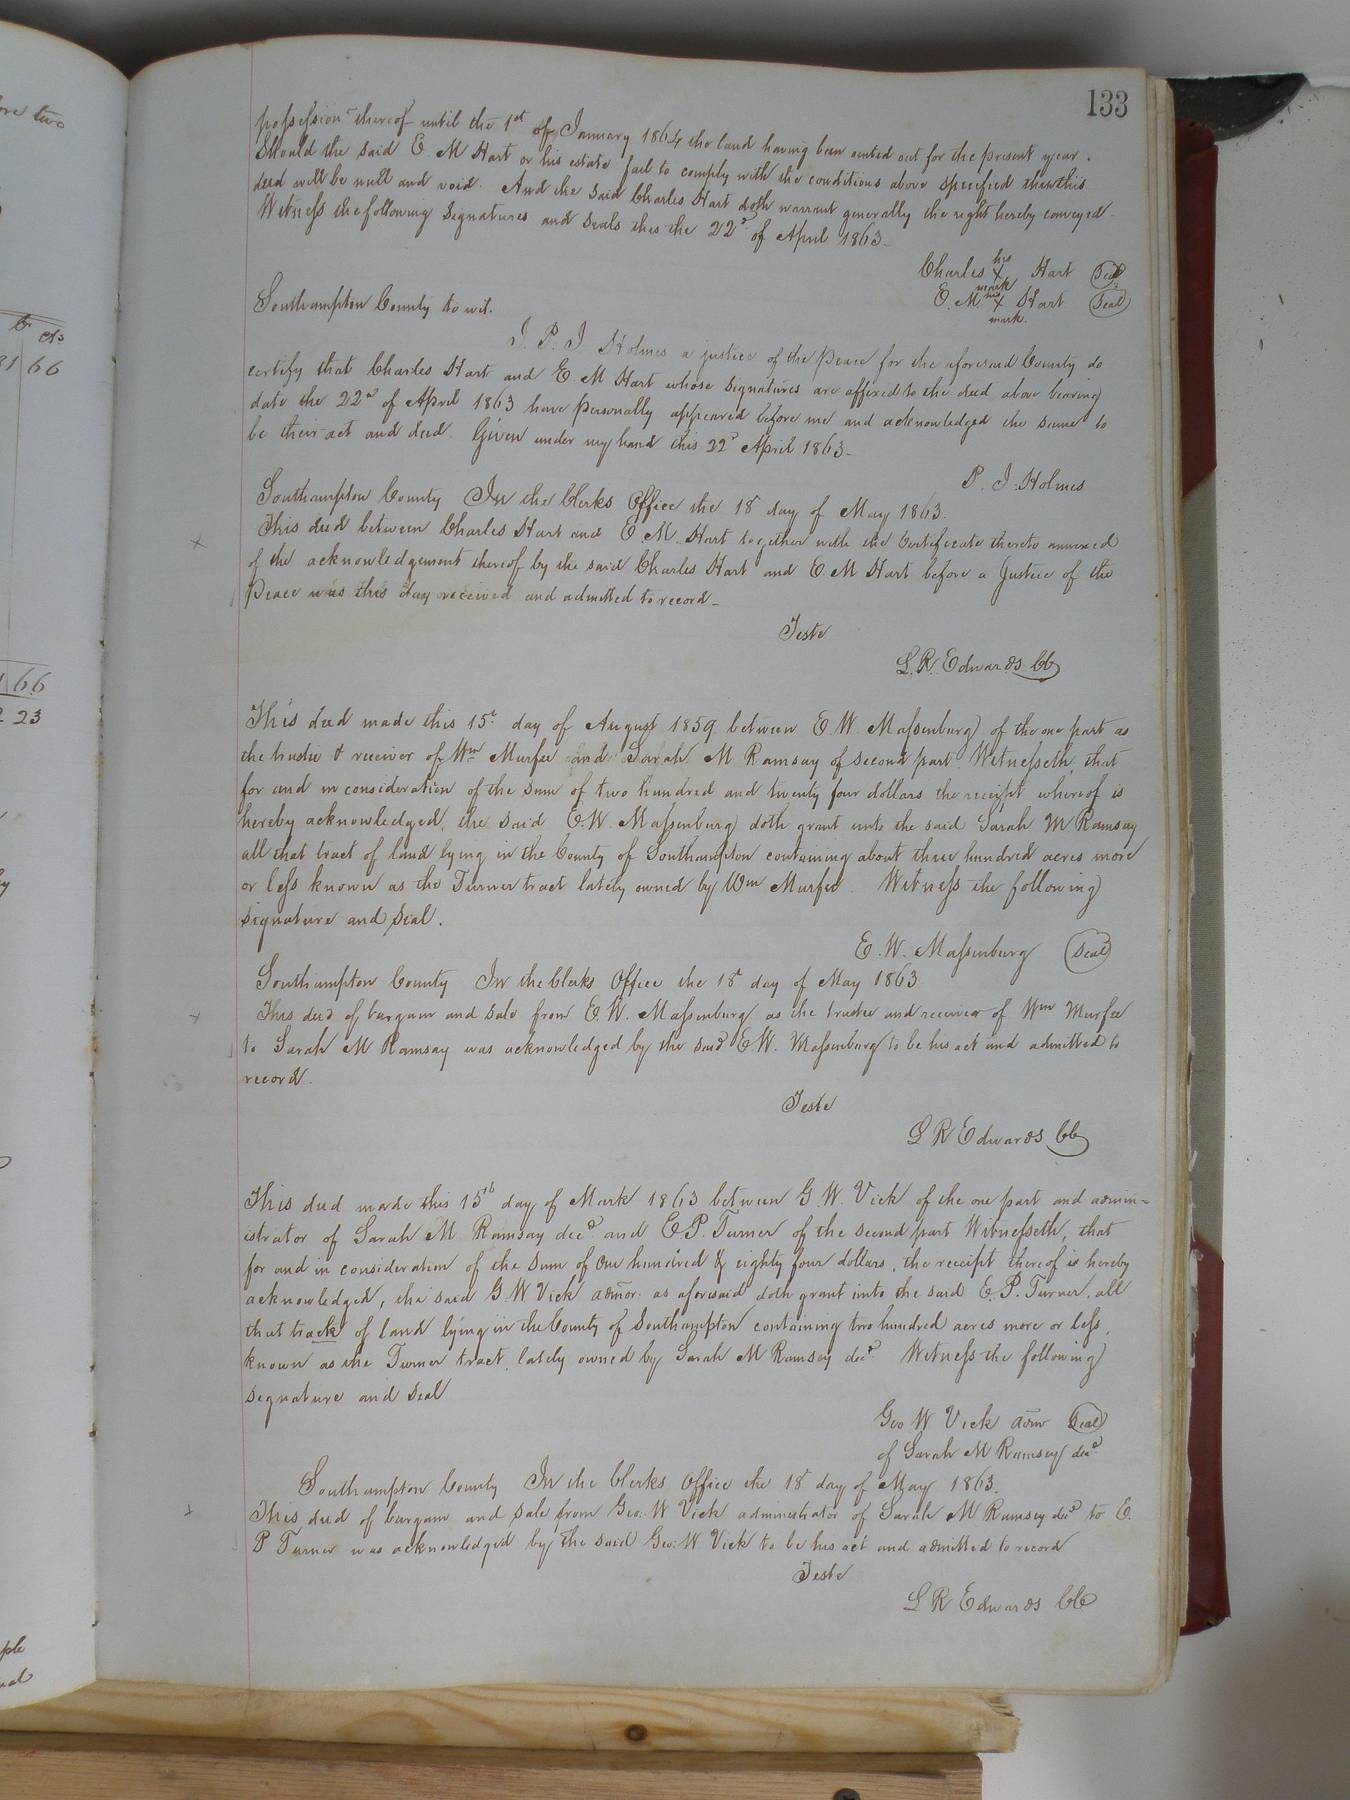 133
possession thereof until the 1st of January 1864 the land having been rented out for the present year.
Should the said E. M Hart or his estate fail to comply with the conditions above specified then this
deed will be null and void. And the said Charles Hart doth warrant generally the right hereby conveyed.
Witness the following signatures and seals this the 22d of April 1863.
Charles his X mark Hart Seal
E. M his X mark Hart Seal
Southampton County to wit.
I. P. J. Holmes a justice of the Peace for the aforesaid County do
certify that Charles Hart and E. M Hart whose signatures are affixed to the deed above bearing
date the 22d of April 1863 have personally appeared before me and acknowledged the same to
be their act and deed. Given under my hand this 22d April 1863.
P. J. Holmes
Southampton County In the Clerks Office the 18 day of May 1863.
This deed between Charles Hart and E. M. Hart together with the Certificate thereto annexed
of the acknowledgement thereof by the said Charles Hart and E. M Hart before a Justice of the
Peace was this day received and admitted to record.
Teste
L. R. Edwards CC
This deed made this 15t day of August 1859 between E. W. Massenburg of the one part as
the trustee & receiver of Wm Murfee and Sarah M Ramsay of second part Witnesseth, that
for and in consideration of the sum of two hundred and twenty four dollars the receipt whereof is
hereby acknowledged, the said E. W. Massenburg doth grant unto the said Sarah M Ramsay
all that tract of land lying in the County of Southampton containing about three hundred acres more
or less known as the Turner tract lately owned by Wm Murfee. Witness the following
signature and seal.
E. W. Massenburg Seal
Southampton County In the Clerks Office the 18 day of May 1863
This deed of bargain and sale from E. W. Massenburg as the trustee and receiver of Wm Murfee
to Sarah M Ramsay was acknowledged by the said E. W. Massenburg to be his act and admitted to
record.
Teste
L R Edwards CC
This deed made this 15th day of Mark 1863 between G. W. Vick of the one part and admin-
istrator of Sarah M Ramsay decd and E. P. Turner of the second part Witnesseth, that
for and in consideration of the sum of one hundred & eighty four dollars, the receipt thereof is hereby
acknowledged, the said G. W Vick admor. as aforesaid doth grant unto the said E. P. Turner, all
that track of land lying in the County of Southampton containing two hundred acres more or less,
known as the Turner tract, lately owned by Sarah M Ramsay decd Witness the following
signature and seal
Geo W Vick adm Seal
of Sarah M Ramsey decd
Southampton County In the Clerks Office the 18 day of May 1863.
This deed of bargain and sale from Geo. W Vick administrator of Sarah M Ramsey decd to E.
P Turner was acknowledged by the said Geo. W Vick to be his act and admitted to record
Teste
L R Edwards CC